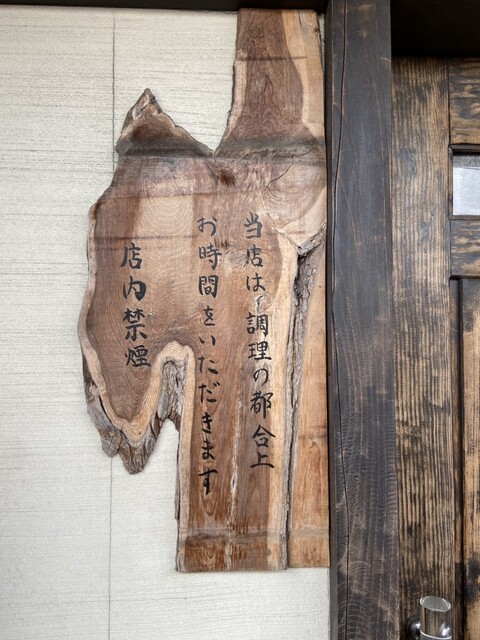 当店は、調理の都合上
お時間をいただきます
店内禁煙